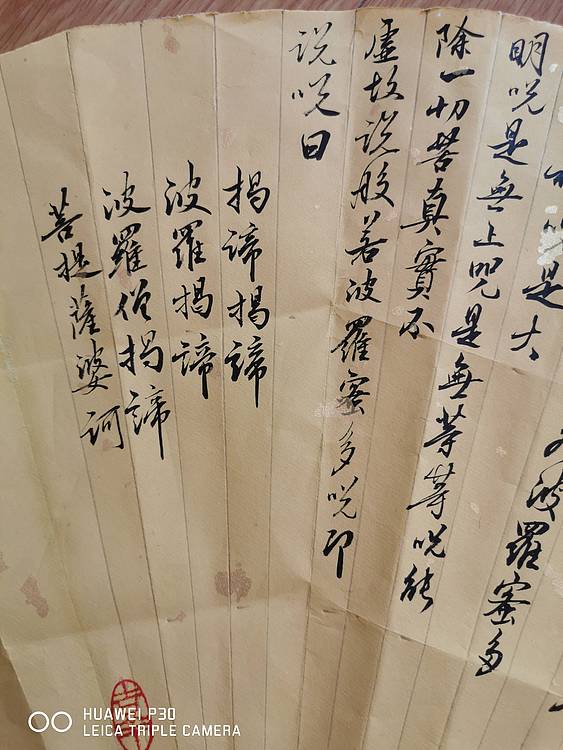 波羅蜜多
呪是大
明呪是無上呪是無等等呪能
除一切苦真實不
虛故說般若波羅蜜多呪即
說呪曰
揭諦揭諦
波羅揭諦
波羅僧揭諦
菩提薩婆訶
HUAWEI P30
LEICA TRIPLE CAMERA